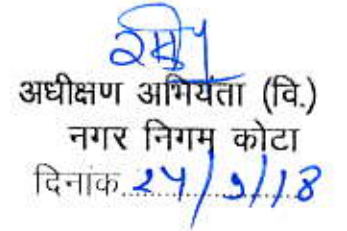 अधीक्षण अभियंता (वि.)
नगर निगम कोटा
दिनांक